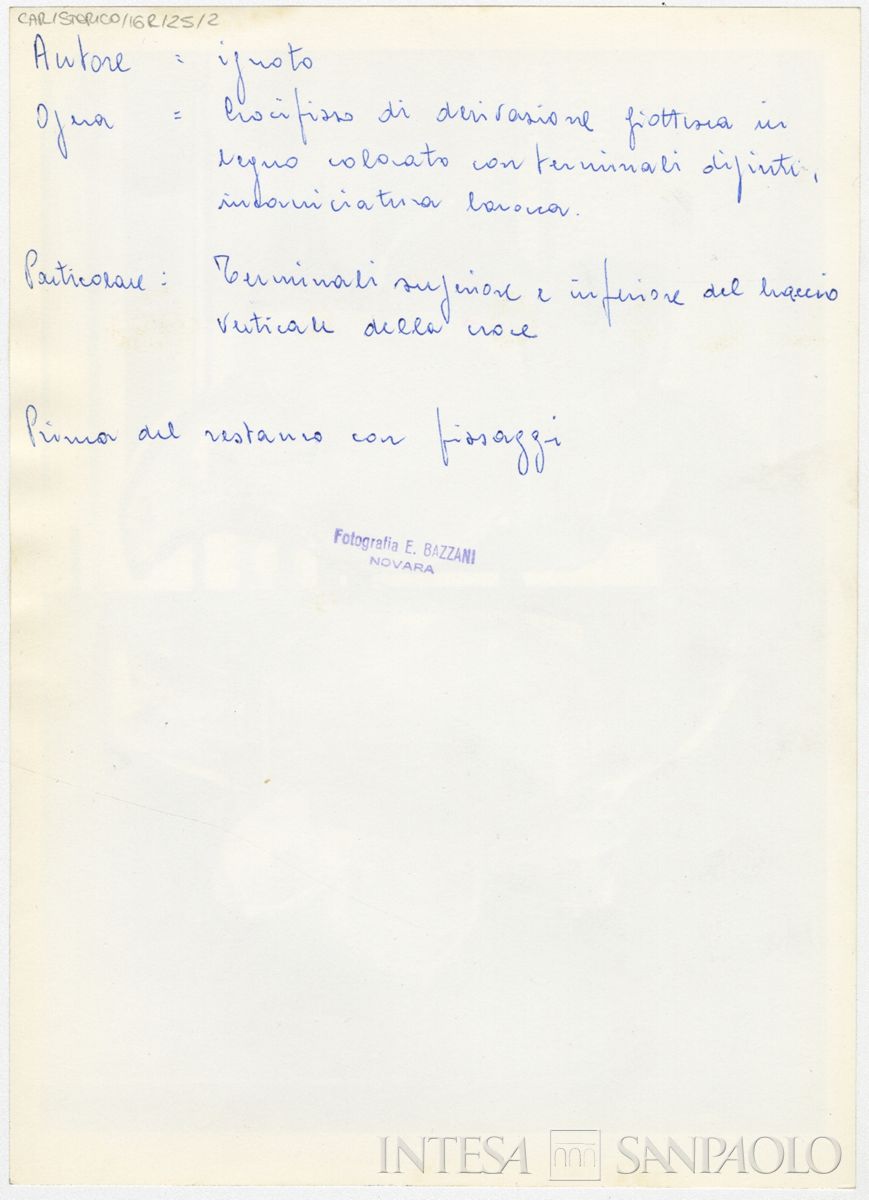 CAR/STORICO/16R/25/2
Autore = ignoto
Opera = Crocifisso di derivazione giottesca in
legno colorato con terminali dipinti,
incorniciatura barocca.
Particolare : Terminali superiore e inferiore del braccio
verticale della croce
Prima del restauro con fissaggi
Fotografia E. BAZZANI
NOVARA
INTESA SANPAOLO